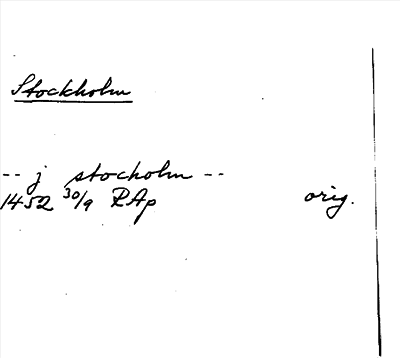 Stockholm
-- j stocholm --
1452 30/9 RAp orig.